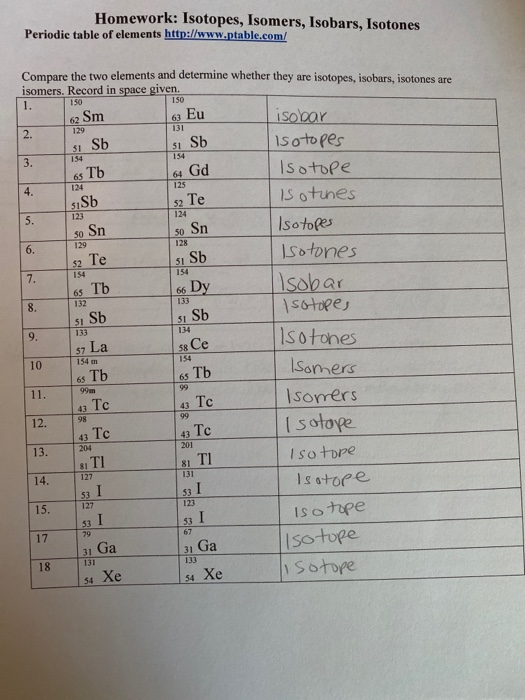 Homework: Isotopes, Isomers, Isobars, Isotones
Periodic table of elements http://www.ptable.com/
Compare the two elements and determine whether they are isotopes, isobars, isotones are
isomers. Record in space given.
1. 150 62 Sm 150 63 Eu isobar
2. 129 51 Sb 131 51 Sb Isotopes
3. 154 65 Tb 154 64 Gd Isotope
4. 124 51 Sb 125 52 Te Isotines
5. 123 50 Sn 124 50 Sn Isotopes
6. 129 52 Te 128 51 Sb Isotones
7. 154 65 Tb 154 66 Dy Isobar
8. 132 51 Sb 133 51 Sb Isotopes
9. 133 57 La 134 58 Ce Isotones
10 154 m 65 Tb 154 65 Tb Isomers
11. 99m 43 Tc 99 43 Tc Isomers
12. 98 43 Tc 99 43 Tc Isotope
13. 204 81 Tl 201 81 Tl Isotope
14. 127 53 I 131 53 I Isotope
15. 127 53 I 123 53 I Isotope
17 79 31 Ga 67 31 Ga Isotope
18 131 54 Xe 133 54 Xe isotope